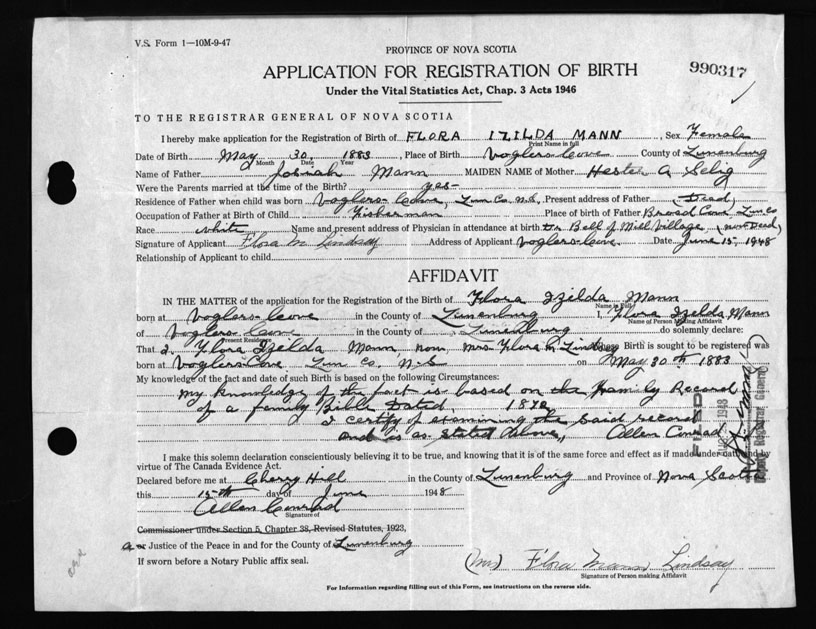 V.S. Form 1—10M-9-47
PROVINCE OF NOVA SCOTIA
APPLICATION FOR REGISTRATION OF BIRTH
990317
Under the Vital Statistics Act, Chap. 3 Acts 1946
TO THE REGISTRAR GENERAL OF NOVA SCOTIA
I hereby make application for the Registration of Birth of FLORA IZILDA MANN, Sex Female
Print Name in full
Date of Birth May 30 1883, Place of Birth Voglers Cove County of Lunenburg
Month Date Year
Name of Father Josiah Mann MAIDEN NAME of Mother Hester A Selig
Were the Parents married at the time of Birth? yes-
Residence of Father when child was born Voglers Cove, Lun Co. N.S. Present address of Father (Dead)
Occupation of Father at Birth of Child Fisherman Place of birth of Father Broad Cove Lun Co
Race white Name and present address of Physician in attendance at birth Dr Bell of Mill Village (now Dead)
Signature of Applicant Flora M Lindsay Address of Applicant Voglers-Cove. Date June 15, 1948
Relationship of Applicant to child
AFFIDAVIT
IN THE MATTER of the application for the Registration of the Birth of Flora Izelda Mann
Name in Full
born at Voglers-Cove in the County of Lunenburg I, Flora Izelda Mann
Name of Person Making Affidavit
of Voglers Cove in the County of Lunenburg do solemnly declare:
Present Residence
That I, Flora Izelda Mann, now, Mrs Flora M Lindsay Birth is sought to be registered was
born at Voglers Cove Lun Co. N-S on May 30th 1883
My knowledge of the fact and date of such Birth is based on the following Circumstances:
My knowledge of the fact is based on the Family Record
of a family Bible Dated, 1870
I certify of examining the said record
and is as stated above,, Allen Conrad
FILED
1948
I make this solemn declaration conscientiously believing it to be true, and knowing that it is of the same force and effect as if made under oath and by
virtue of The Canada Evidence Act.
Declared before me at Cherry Hill in the County of Lunenburg and Province of Nova Scotia
this 15th day of June 1948
Allen Conrad
Signature of
Commissioner under Section 5, Chapter 38, Revised Statutes, 1923,
a or Justice of the Peace in and for the County of Lunenburg
If sworn before a Notary Public affix seal.
(Mrs) Flora Mann Lindsay
Signature of Person making Affidavit
For Information regarding filling out of this Form, see instructions on the reverse side.